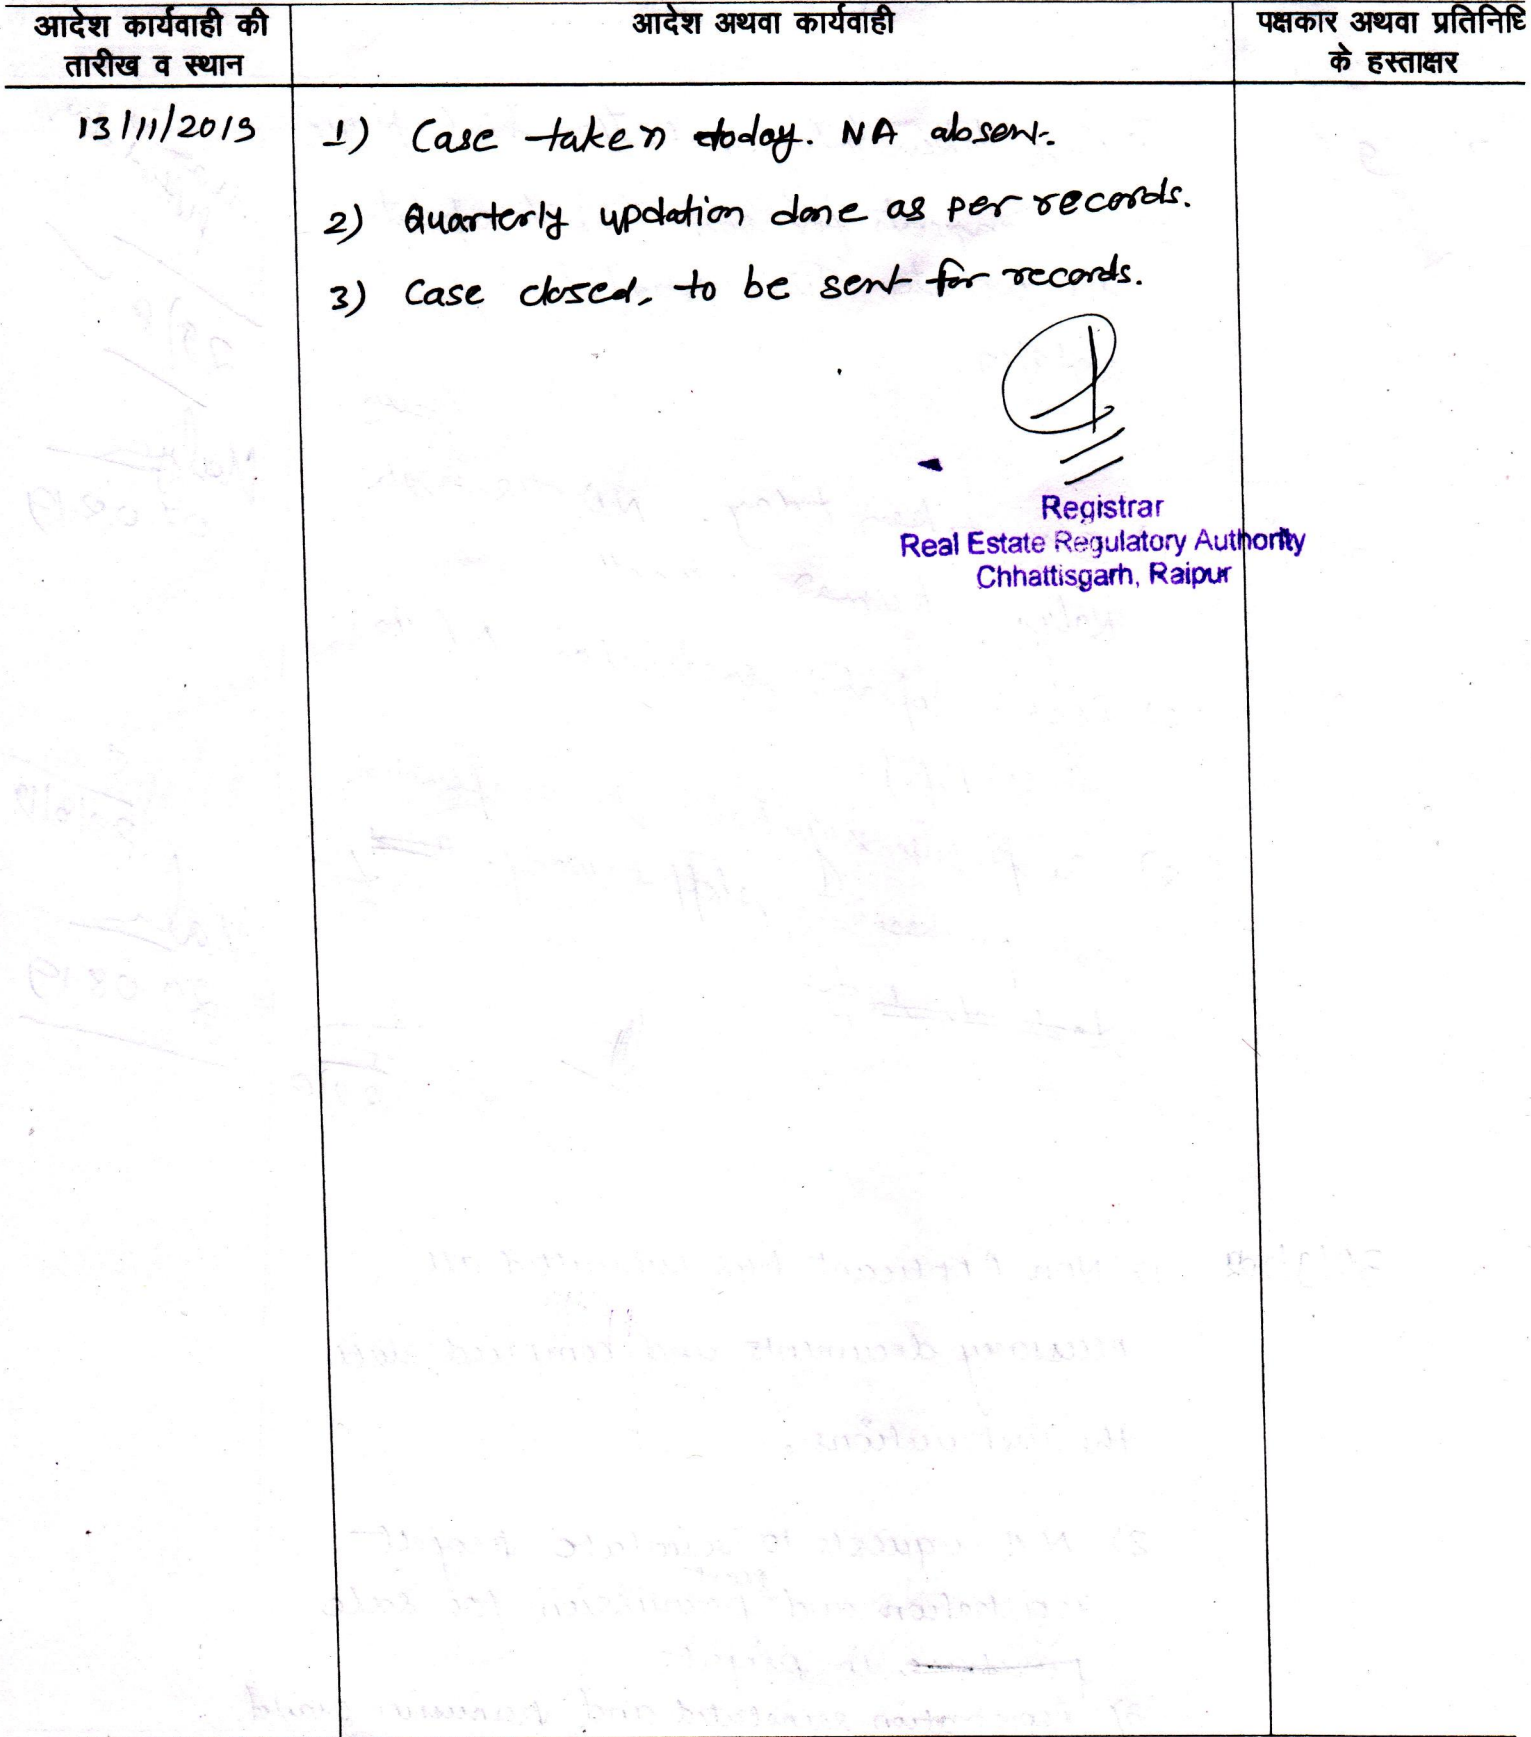 आदेश कार्यवाही की तारीख व स्थान
आदेश अथवा कार्यवाही
पक्षकार अथवा प्रतिनिधि के हस्ताक्षर
13/11/2019
1) Case taken today. NA absent.
2) Quarterly updation done as per records.
3) Case closed, to be sent for records.
Registrar
Real Estate Regulatory Authority
Chhattisgarh, Raipur